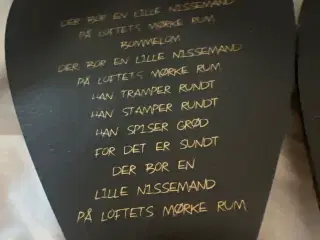 DER BOR EN LILLE NISSEMAND
PÅ LOFTETS MØRKE RUM
BOMMELOM
DER BOR EN LILLE NISSEMAND
PÅ LOFTETS MØRKE RUM
HAN TRAMPER RUNDT
HAN STAMPER RUNDT
HAN SPISER GRØD
FOR DET ER SUNDT
DER BOR EN
LILLE NISSEMAND
PÅ LOFTETS MØRKE RUM